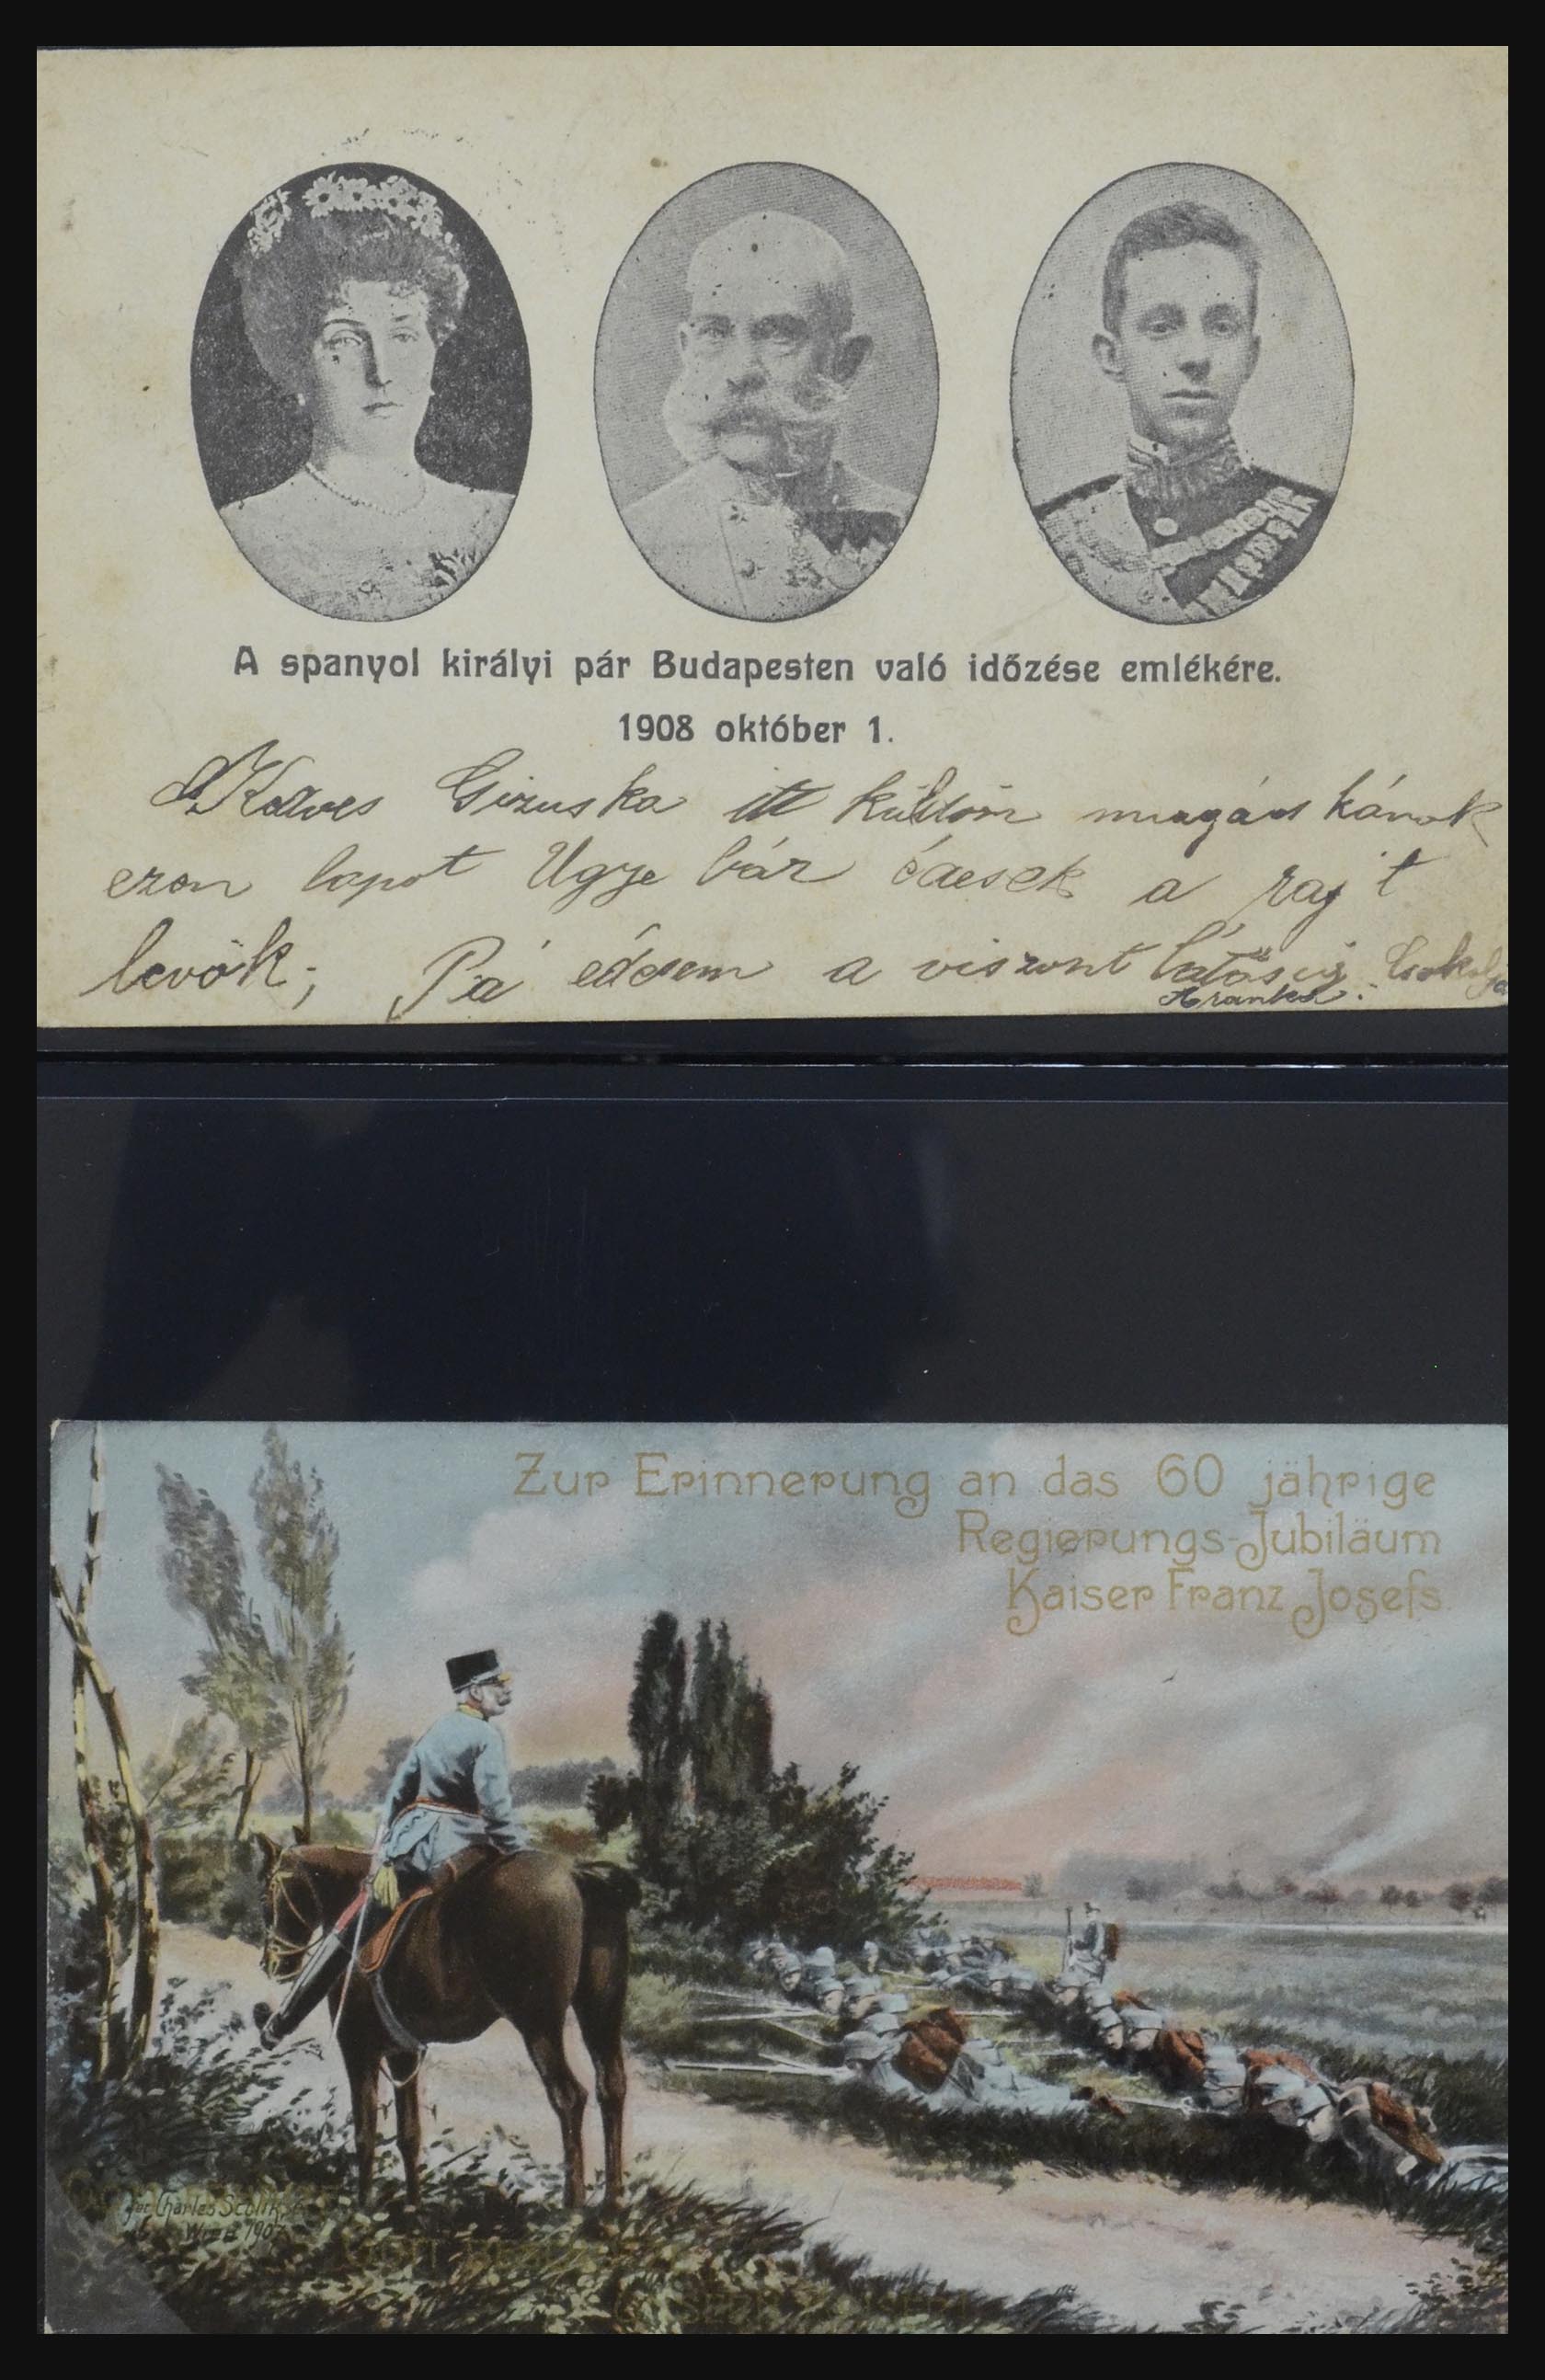 A spanyol királyi pár Budapesten való időzése emlékére.
1908 október 1.
Kedves Gizuska itt küldöm magácskának
ezen lapot Ugye bár édesek a rajt
levök; Pá édesem a viszont látásig Csokolja
Aranka.
Zur Erinnerung an das 60 jährige
Regierungs-Jubiläum
Kaiser Franz Josefs.
Charles Scolik
Wien 1907